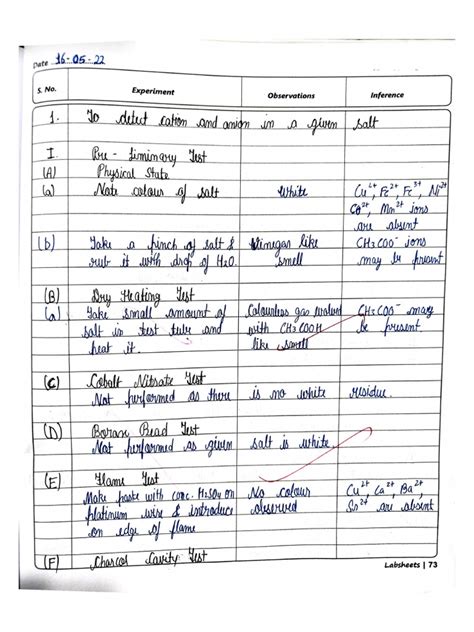 Date 16-05-22
S. No. Experiment Observations Inference
1. To detect cation and anion in a given salt
I. Pre-Liminary Test
(A) Physical State
(a) Note colour of salt White Cu2+, Fe2+, Fe3+, Ni2+
Co2+, Mn2+ ions
are absent
(b) Take a pinch of salt & Vinegar like CH3COO- ions
rub it with drop of H2O. smell may be present
(B) Dry Heating Test
(a) Take small amount of Colourless gas CH3COO- may
salt in test tube and with CH3COOH be present
heat it. like smell
(C) Cobalt Nitrate Test
Not performed as there is no white residue.
(D) Borax Bead Test
Not performed as given salt is white
(E) Flame Test
Make paste with conc. H2SO4 on No colour Cu2+, Ca2+, Ba2+,
platinum wire & introduce observed are absent
on edge of flame
(F) Charcol Cavity Test
Labsheets | 73